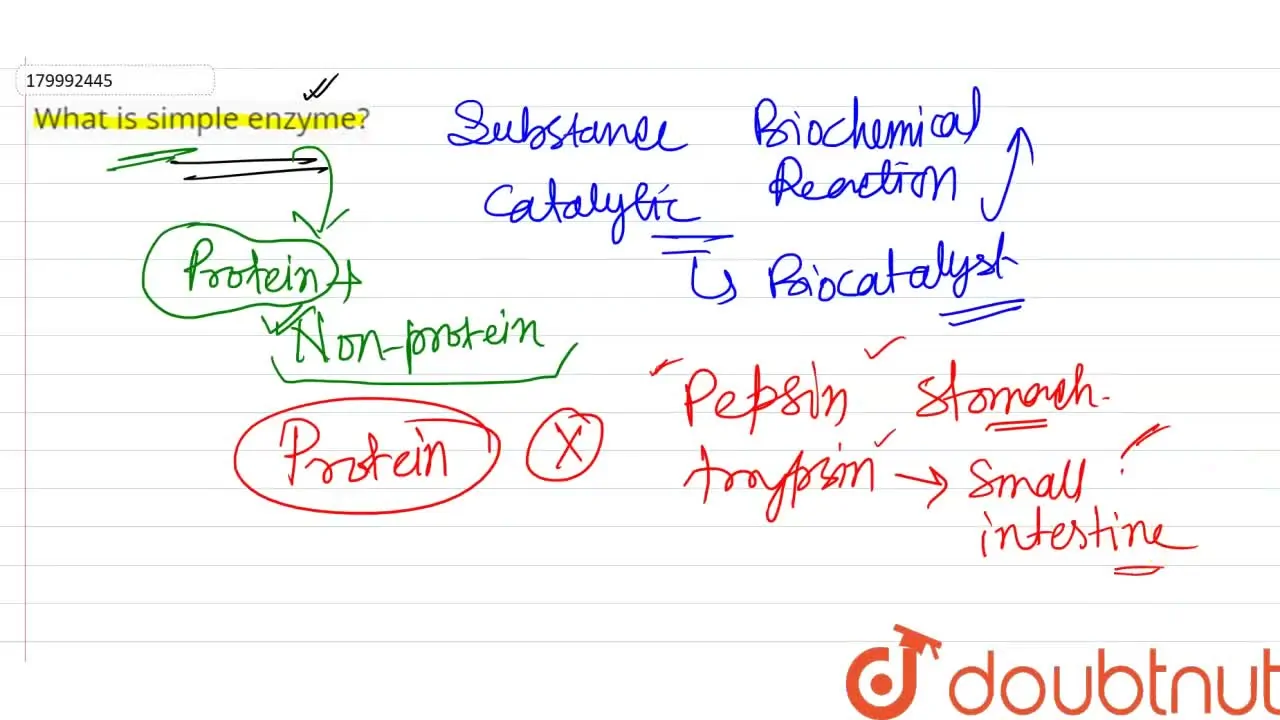 179992445
What is simple enzyme?
Substance Biochemical
Reaction
Catalytic
Biocatalyst
Protein +
Non-protein
Protein X
Pepsin stomach.
trypsin → Small
intestine
doubtnut